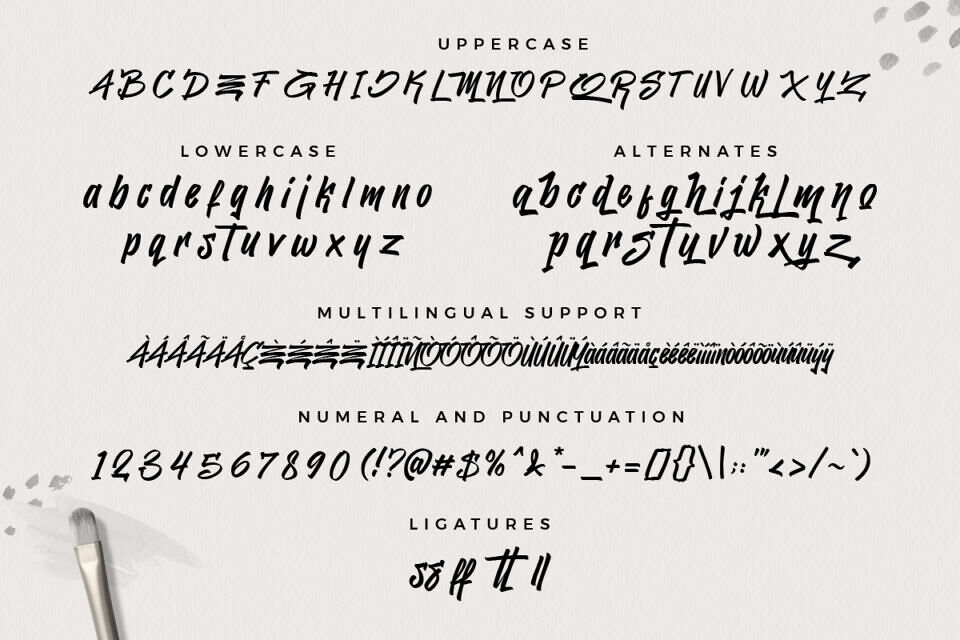 UPPERCASE
A B C D E F G H I J K L M N O P Q R S T U V W X Y Z
LOWERCASE
a b c d e f g h i j k l m n o
p q r s t u v w x y z
ALTERNATES
a b c d e f g h i j k l m n o
p q r s t u v w x y z
MULTILINGUAL SUPPORT
ÀÁÂÃÄÅÇÈÉÊËÌÍÎÏÑÒÓÔÕÖÙÚÛÜÝàáâãäåçèéêëìíîïñòóôõöùúûüýÿ
NUMERAL AND PUNCTUATION
1 2 3 4 5 6 7 8 9 0 (!?@#$%^&*-_+=[]{}\|;:'"<>/~`)
LIGATURES
ss ff tt ll